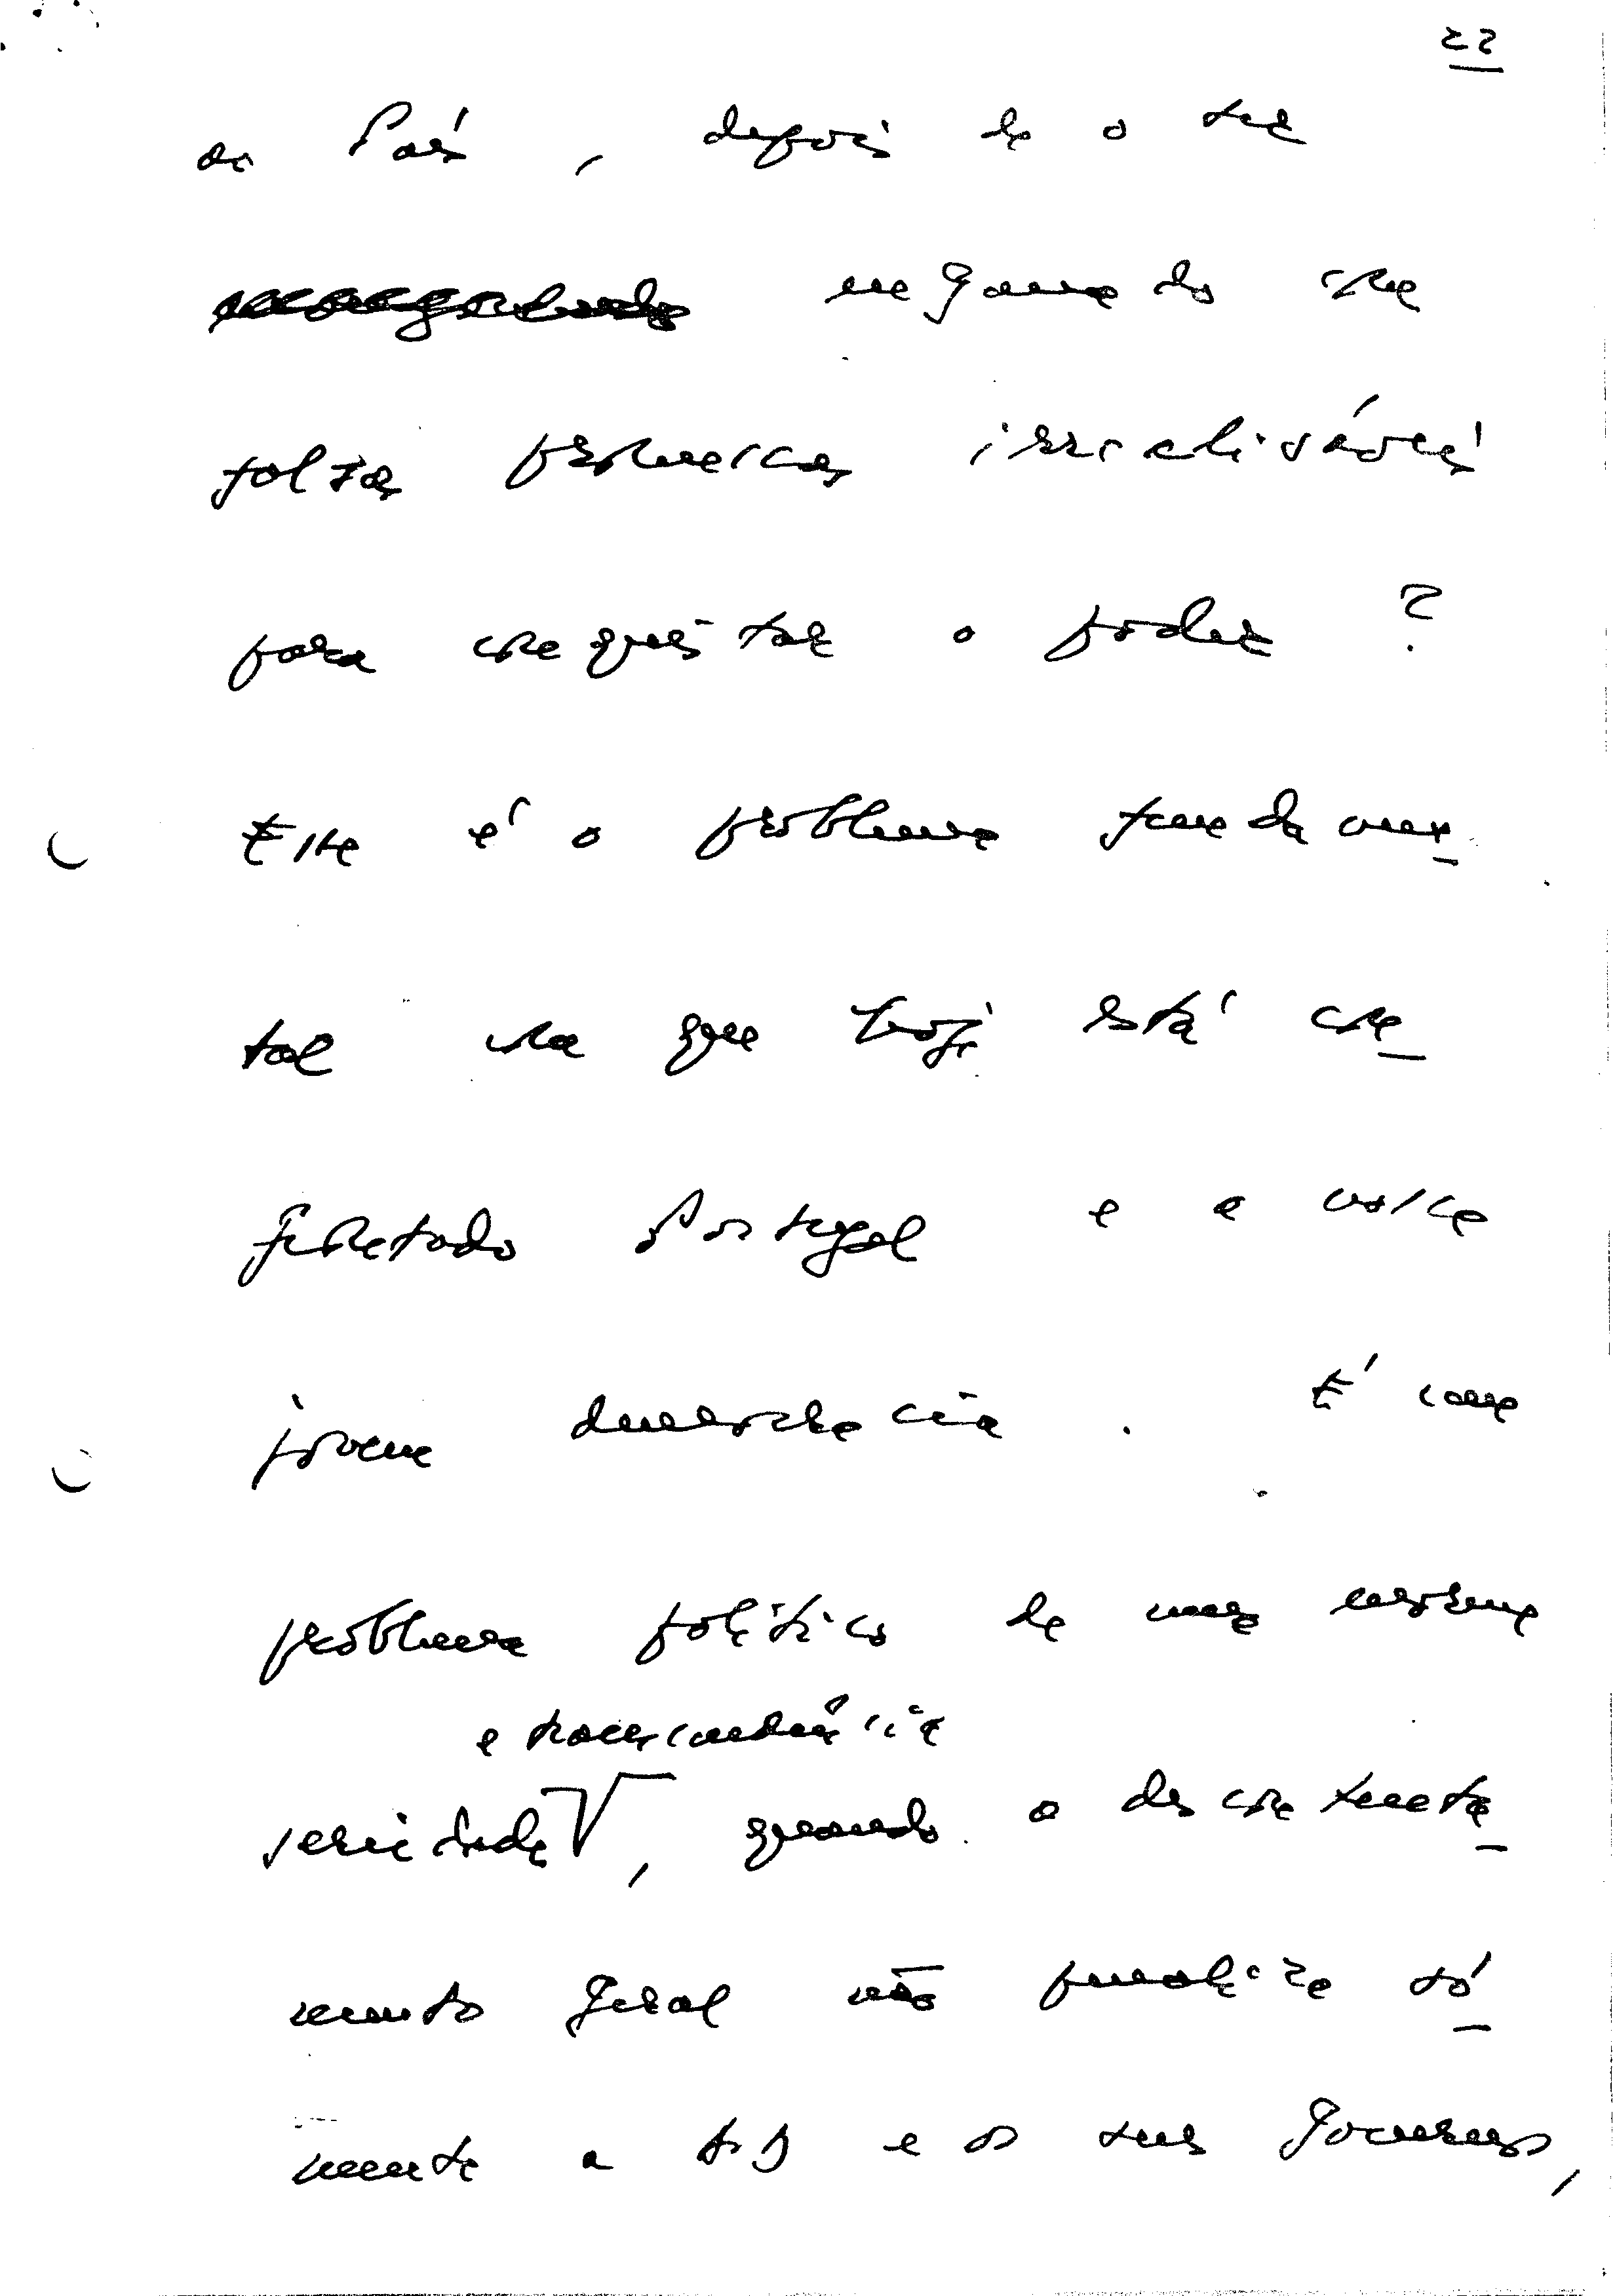 22
ao País, depois de o ter
enganado com
falsas promessas irrealizáveis
para conquistar o poder?
Este é o problema fundamen-
tal com que hoje está con-
frontado Portugal e a nossa
jovem democracia. É um
problema político de uma enorme
e transcendência
seriedade, quando o descontenta-
mento geral não penaliza só-
mente a AD e os seus Governos,